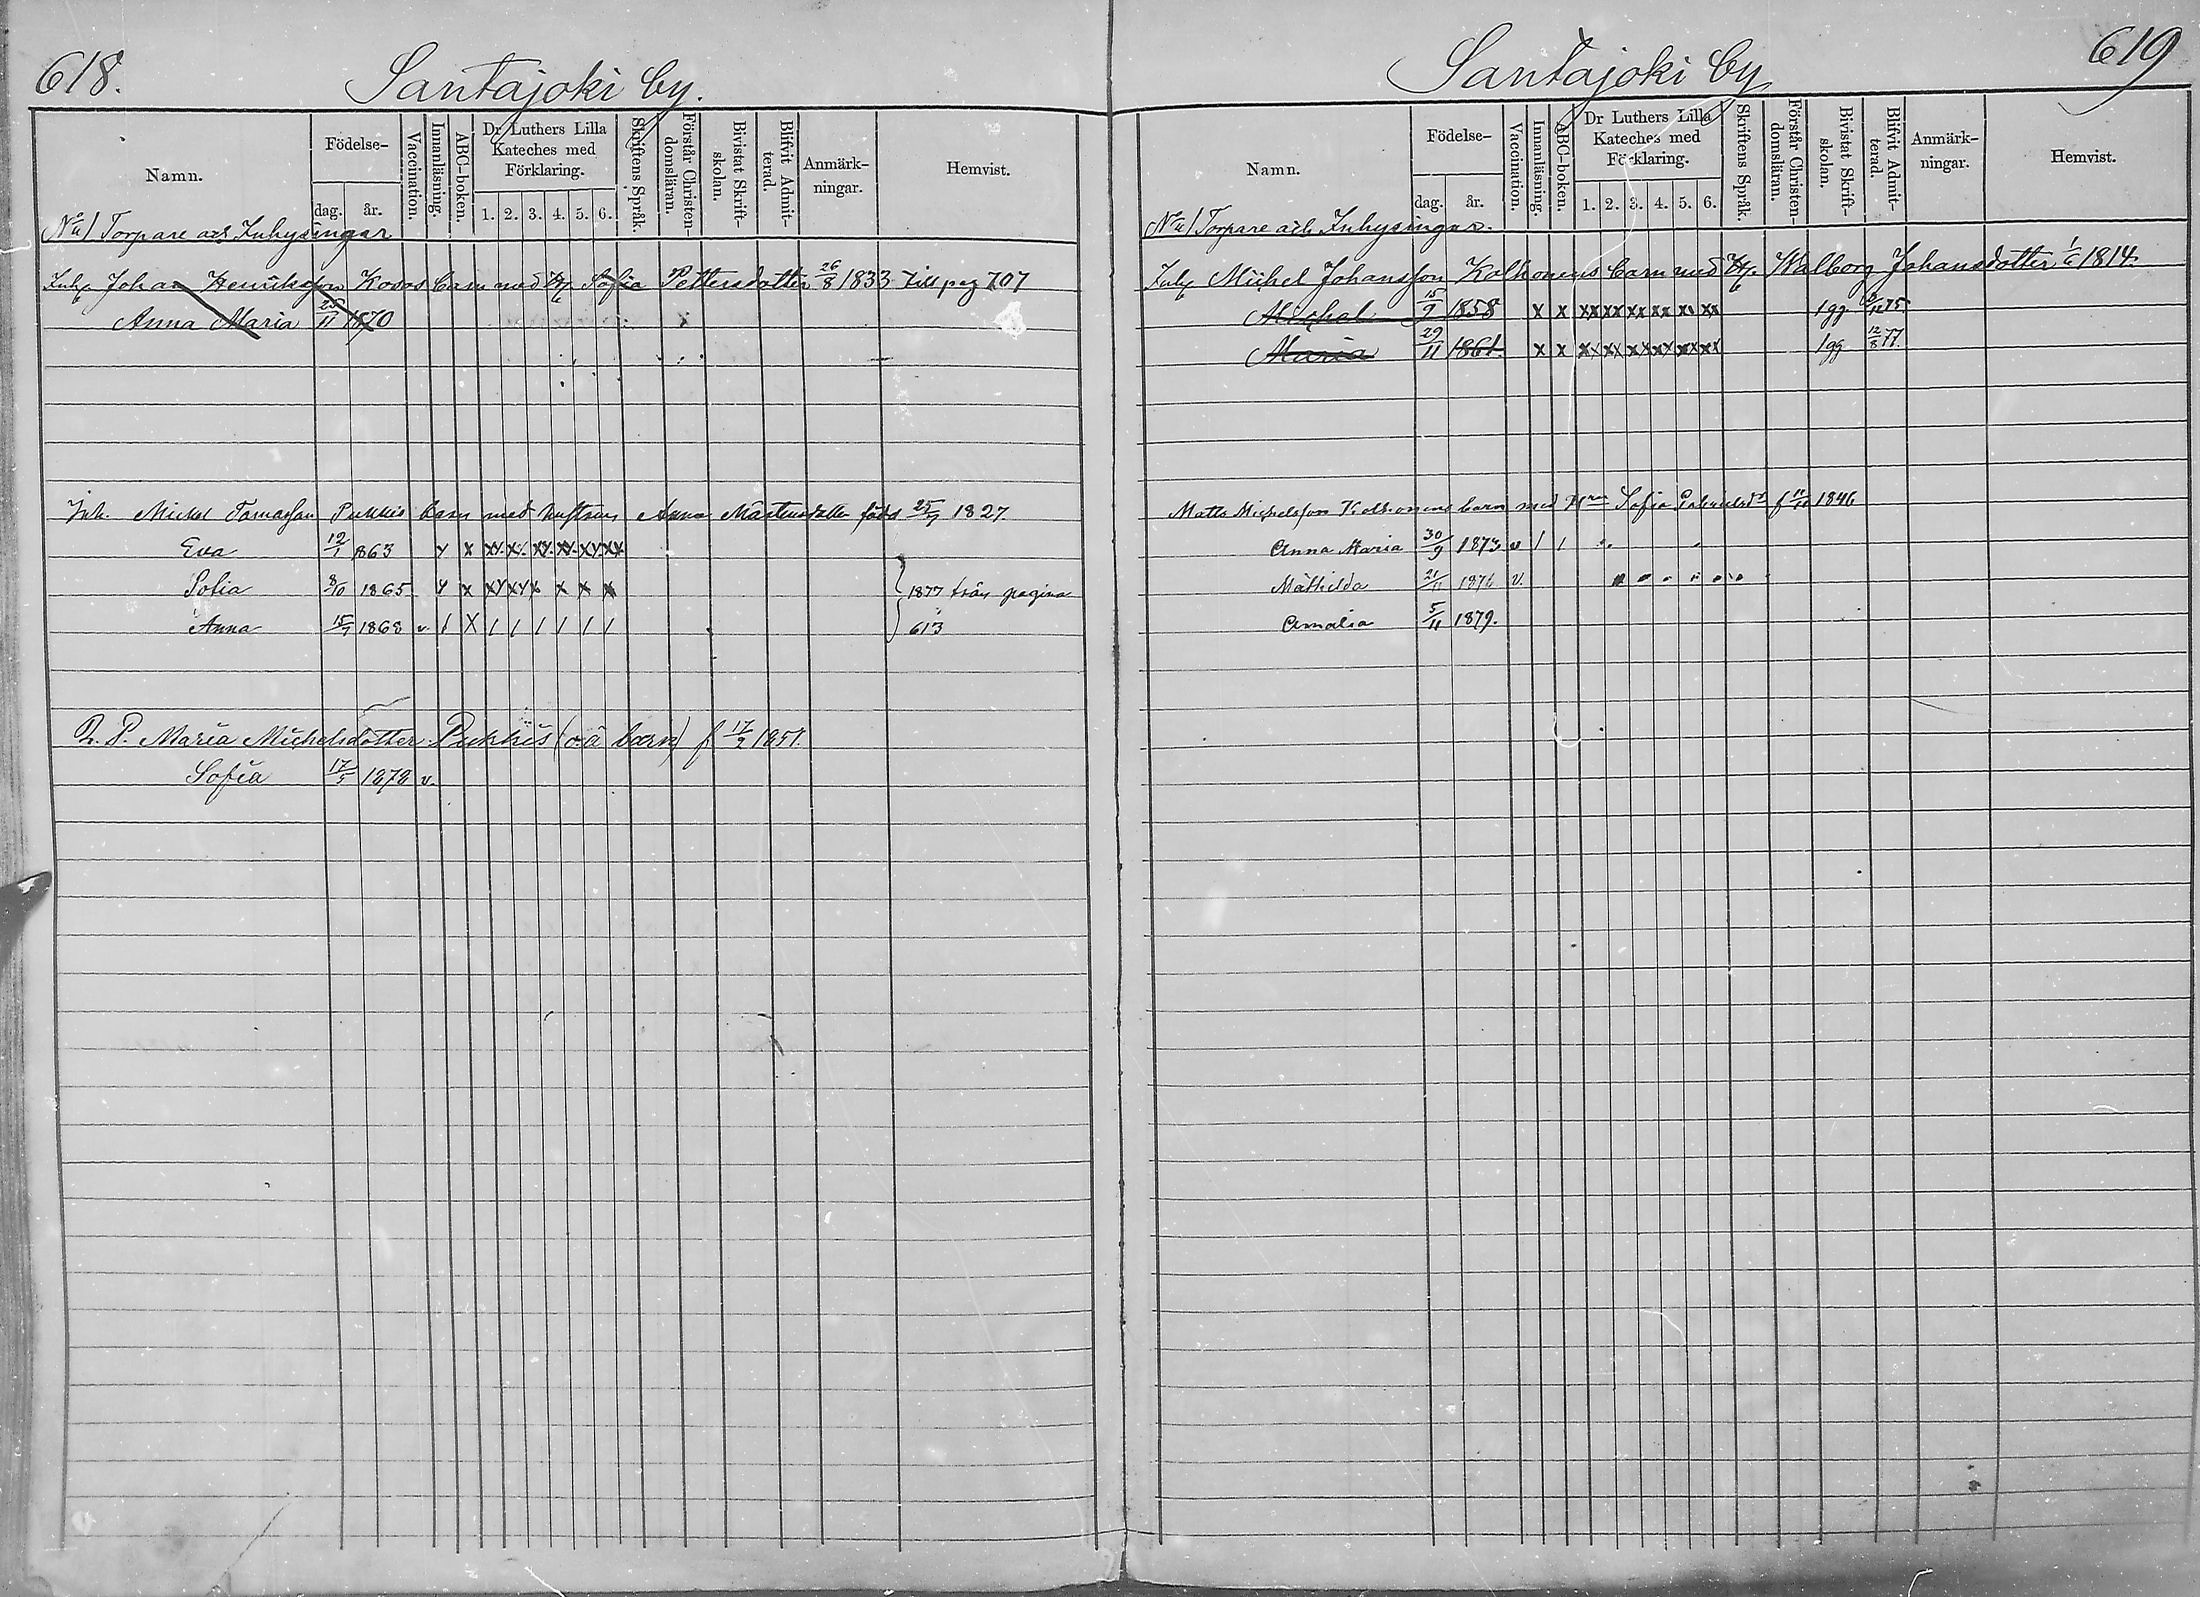 618.
Santajoki by.
Namn.
Födelse-
dag.
år.
Vaccination.
Innanläsning.
ABC-boken.
Dr Luthers Lilla
Kateches med
Förklaring.
1. 2. 3. 4. 5. 6.
Skriftens Språk.
Förstår Christen-
domsläran.
Bivistat Skrift-
skolan.
Blifvit Admit-
terad.
Anmärk-
ningar.
Hemvist.
No 1 Torpare och Inhysingar
Inh. Johan Henriksson Kovos barn med H. Sofia Pettersdotter 26/8 1833 till pag 707
Anna Maria 25/11 1870
Inh. Mickel Tomasson Pukkis barn med hustrun Anna Mårtensdotter född 25/7 1827
Eva 12/1 1863 x x xx xx xx xx xx xx
Sofia 3/10 1865 x x xx xx x x x x
1877 från pagina
Anna 15/7 1868 v. / X / / / / / /
613
Q. P. Maria Michelsdotter Pukkis (o.ä barn) f 17/2 1851.
Sofia 17/5 1878 v.
619
Santajoki by
Namn.
Födelse-
dag.
år.
Vaccination.
Innanläsning.
ABC-boken.
Dr Luthers Lilla
Kateches med
Förklaring.
1. 2. 3. 4. 5. 6.
Skriftens Språk.
Förstår Christen-
domsläran.
Bivistat Skrift-
skolan.
Blifvit Admit-
terad.
Anmärk-
ningar.
Hemvist.
No 1 Torpare och Inhysingar.
Inh. Michel Johansson Kolhonens barn med H. Walborg Johansdotter 1/6 1814.
Michel 15/9 1858 x x xx xx xx xx xx xx 1gg. 75
Maria 29/11 1861. x x xx xx xx xx xx xx 1gg 12/8 77.
Matts Michelsson Kolhonens barn med Hrun Sofia f 11/10 1846
Anna Maria 30/9 1873 v / /
Mathilda 21/11 1876 v.
Amalia 5/11 1879.